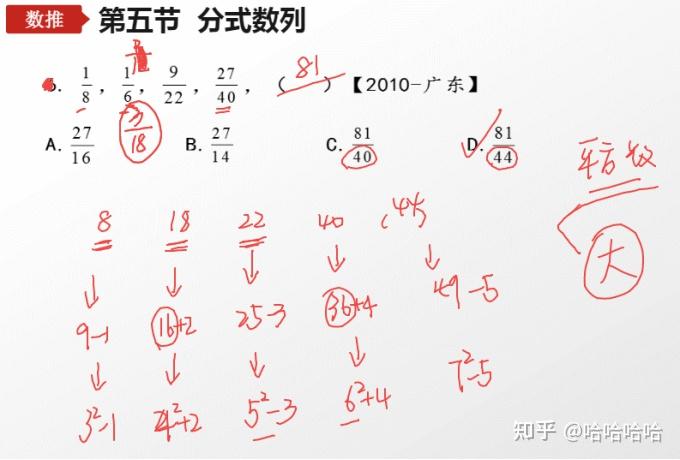 数推 第五节 分式数列
5. 1/8, 1/6, 9/22, 27/40, ( 81 ) 【2010-广东】
3/18
A. 27/16 B. 27/14 C. 81/40 D. 81/44
平方数
大
8 18 22 40 (44)
9-1 16+2 25-3 36+4 49-5
3²-1 4²+2 5²-3 6²+4 7²-5
知乎 @哈哈哈哈